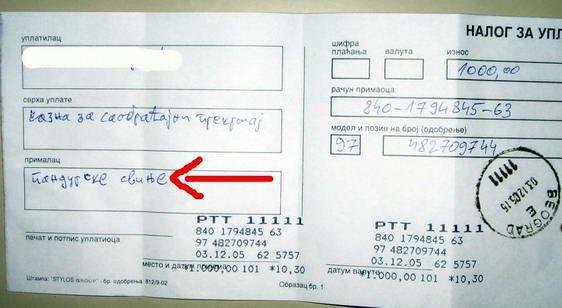 НАЛОГ ЗА УПЛ
уплатилац
шифра
плаћања
валута
износ
1000,00
сврха уплате
казна за саобраћајни прекршај
рачун примаоца
840-1794845-63
модел и позив на број (одобрење)
97
482709744
прималац
пандурске свиње
11111
03.12.05.15
BEOGRAD
PTT 11111
840 1794845 63
97 482709744
03.12.05 62 5757
*1.000,00 101 *10,30
PTT 11111
840 1794845 63
97 482709744
03.12.05 62 5757
*1.000,00 101 *10,30
печат и потпис уплатиоца
место и датум пријема
датум валуте
Штампа: "STYLOS GROUP" - бр. одобрења 812/9-02
Образац бр. 1